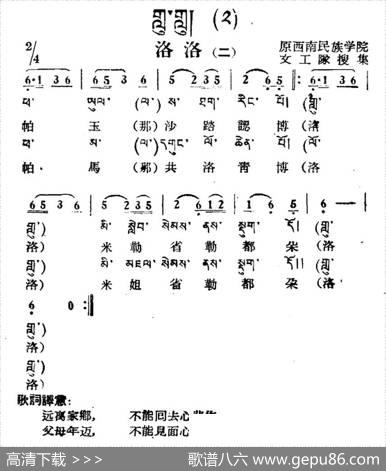 གླུ་གླུ། (༢)
洛洛(二)
2/4
原西南民族学院
文工隊搜集
6·1 3 6 | 6 5 3 | 1 2 3 5 | 2 1 6 5 :|: 6·1 3 6
ཕ་ ཡུལ་ (ལ་) ས་ ཐག་ རིང་ པོ། (གླུ་
帕 玉 (那) 沙 踏 認 博 (洛
ཕ་ མ་ (ལ་) དགུང་ ལོ་ ཆེན་ པོ། (གླུ་
帕 馬 (那) 共 洛 青 博 (洛
6 5 3 6 | 5 3 2 3 | 1 2 6 1 2 | 1 6 5 | 6 —
གླུ་) མི་ སླེབ་ སེམས་ ནས་ སྡུག་ པོ། (གླུ་
洛) 米 勒 省 勒 都 朵 (洛
གླུ་) མི་ མཇལ་ སེམས་ ནས་ སྡུག་ པོ།། (གླུ་
洛) 米 姐 省 勒 都 朵 (洛
6 0 :||
གླུ་)
洛)
གླུ་)
洛)
歌詞譯意:
远离家鄉, 不能回去心
父母年迈, 不能見面心
高清下载 >>> 歌谱八六 www.gepu86.com